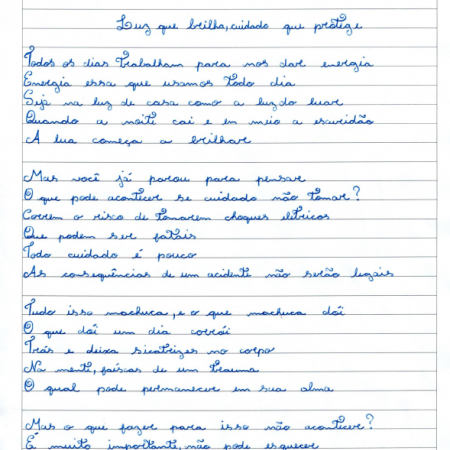 Luz que brilha, cuidado que protege
Todos os dias trabalham para nos dar energia
Energia essa que usamos todo dia
Seja na luz de casa como a luz do luar
Quando a noite cai e em meio a escuridão
A lua começa a brilhar
Mas você já parou para pensar
O que pode acontecer se cuidado não tomar?
Correm o risco de tomarem choques elétricos
Que podem ser fatais
Todo cuidado é pouco
As consequências de um acidente não serão legais
Tudo isso machuca, e o que machuca dói
O que dói um dia corrói
Trás e deixa sicatrizes no corpo
Na mente, faíscas de um trauma
O qual pode permanecer em sua alma
Mas o que fazer para isso não acontecer?
É muito importante, não pode esquecer